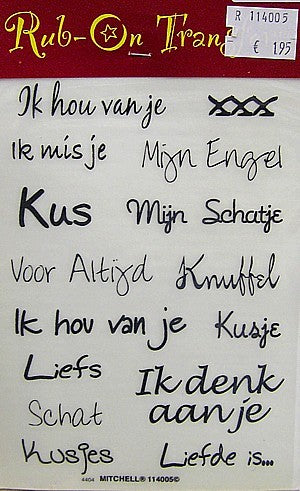 Rub-On Tran
R 114005
€ 1.95
Ik hou van je
xxx
Ik mis je
Mijn Engel
Kus
Mijn Schatje
Voor Altijd
Knuffel
Ik hou van je
Kusje
Liefs
Ik denk
aan je
Schat
Kusjes
Liefde is...
4404 MITCHELL® 114005©